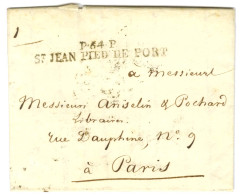 1
P.64.P.
ST JEAN PIED DE PORT
a Messieurs
Messieurs Anselin & Pochard
Libraires
rue Dauphine, No. 9
à Paris